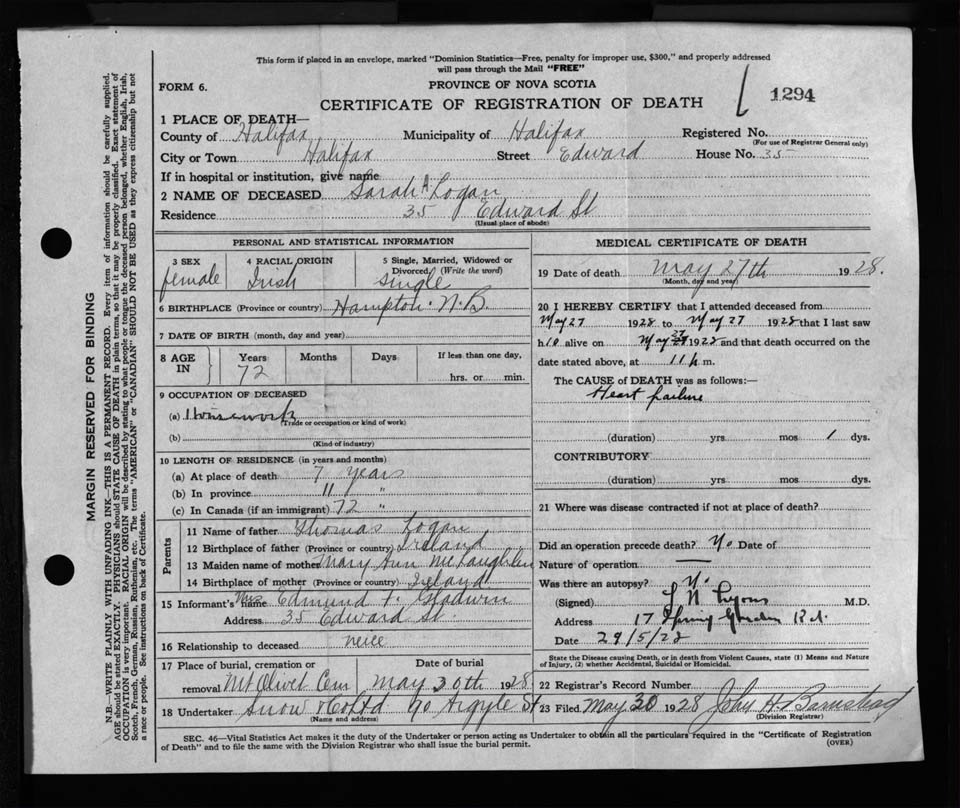 This form if placed in an envelope, marked "Dominion Statistics—Free, penalty for improper use, $300," and properly addressed
will pass through the Mail "FREE"
FORM 6.
PROVINCE OF NOVA SCOTIA
CERTIFICATE OF REGISTRATION OF DEATH
1294
1 PLACE OF DEATH—
County of Halifax Municipality of Halifax Registered No.
(For use of Registrar General only)
City or Town Halifax Street Edward House No. 35
If in hospital or institution, give name
2 NAME OF DECEASED Sarah A Logan
Residence 35 Edward St
(Usual place of abode)
PERSONAL AND STATISTICAL INFORMATION
3 SEX female
4 RACIAL ORIGIN Irish
5 Single, Married, Widowed or Divorced (Write the word) single
6 BIRTHPLACE (Province or country) Hampton N.B.
7 DATE OF BIRTH (month, day and year)
8 AGE IN Years 72 Months Days If less than one day, hrs. or min.
9 OCCUPATION OF DECEASED
(a) Housework
(Trade or occupation or kind of work)
(b)
(Kind of industry)
10 LENGTH OF RESIDENCE (in years and months)
(a) At place of death 7 years
(b) In province 11 "
(c) In Canada (if an immigrant) 72 "
Parents
11 Name of father Thomas Logan
12 Birthplace of father (Province or country) Ireland
13 Maiden name of mother Mary Ann McLaughlin
14 Birthplace of mother (Province or country) Ireland
15 Informant's name Mrs Edmund F. Gladwin
Address 35 Edward St.
16 Relationship to deceased neice
17 Place of burial, cremation or removal Mt Olivet Cem
Date of burial May 30th 1928
18 Undertaker Snow & Co Ltd 90 Argyle St
(Name and address)
MEDICAL CERTIFICATE OF DEATH
19 Date of death May 27th 1928.
(Month, day and year)
20 I HEREBY CERTIFY that I attended deceased from
May 27 1928 to May 27 1928 that I last saw
h alive on May 27 1928 and that death occurred on the
date stated above, at 11 m.
The CAUSE of DEATH was as follows:—
Heart failure
(duration) yrs mos 1 dys.
CONTRIBUTORY
(duration) yrs mos dys.
21 Where was disease contracted if not at place of death?
Did an operation precede death? No Date of
Nature of operation —
Was there an autopsy? N.
(Signed) Lyons M.D.
Address 17 Spring Garden Rd.
Date 29/5/28
State the Disease causing Death, or in death from Violent Causes, state (1) Means and Nature
of Injury, (2) whether Accidental, Suicidal or Homicidal.
22 Registrar's Record Number
23 Filed May 30 1928 John H. Barnstead
(Division Registrar)
SEC. 46—Vital Statistics Act makes it the duty of the Undertaker or person acting as Undertaker to obtain all the particulars required in the "Certificate of Registration
of Death" and to file the same with the Division Registrar who shall issue the burial permit.
(OVER)
MARGIN RESERVED FOR BINDING
N.B.—WRITE PLAINLY WITH UNFADING INK—THIS IS A PERMANENT RECORD. Every item of information should be carefully supplied.
AGE should be stated EXACTLY. PHYSICIANS should STATE CAUSE OF DEATH in plain terms, so that it may be properly classified. Exact statement of
OCCUPATION is very important. RACIAL ORIGIN will be described by stating to what people or tongue the deceased person belonged, whether English, Irish,
Scotch, French, German, Russian, Ruthenian, etc. The terms "AMERICAN" or "CANADIAN" SHOULD NOT BE USED as they express citizenship but not
a race or people. See instructions on back of Certificate.